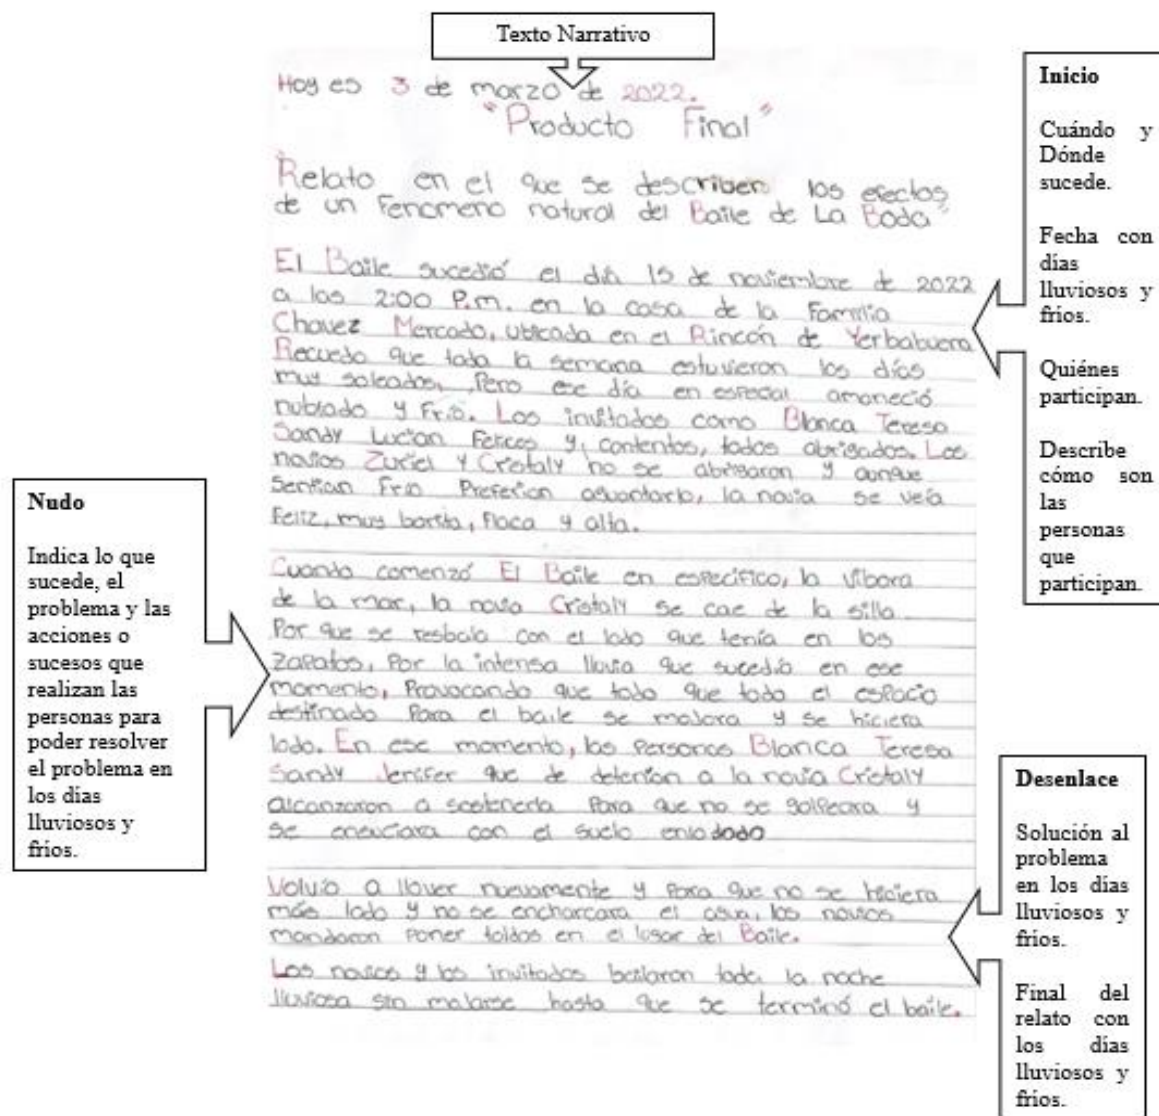 Texto Narrativo
Hoy es 3 de marzo de 2022.
"Producto Final"
"Relato en el que se describen los efectos
de un Fenomeno natural del Baile de La Boda"
El Baile sucedió el día 15 de noviembre de 2022
a las 2:00 P.m. en la casa de la Familia
Chavez Mercado, ubicada en el Rincón de Yerbabuena
Recuedo que toda la semana estuvieron los días
muy soleados, Pero ese día en especial amaneció
nublado y Frio. Los invitados como Blanca Teresa
Sandy Lucian Felices y contentos, todos abrigados. Los
novios Zuriel y Cristaly no se abrigaron y aunque
Sentian Frio Preferian aguantarlo, la novia se veía
Feliz, muy bonita, Flaca y alta.
Cuando comenzó El Baile en especifico, la Vibora
de la mar, la novia Cristaly se cae de la silla
Por que se resbalo con el lodo que tenía en los
zapatos, Por la intensa lluvia que sucedio en ese
momento, Provocando que todo que todo el espacio
destinado Para el baile se mojara y se hiciera
lodo. En ese momento, las Personas Blanca Teresa
Sandy Jenifer que de detenian a la novia Cristaly
alcanzaron a sostenerla Para que no se golpeara y
se ensuciara con el suelo enlodado
Volvio a llover nuevamente y Para que no se hiciera
más lodo y no se encharcara el agua, los novios
mandaron Poner toldos en el lugar del Baile.
Los novios y los invitados bailaron toda la noche
lluviosa sin mojarse hasta que se terminó el baile.
Inicio
Cuándo y
Dónde
sucede.
Fecha con
días
lluviosos y
fríos.
Quiénes
participan.
Describe
cómo son
las
personas
que
participan.
Nudo
Indica lo que
sucede, el
problema y las
acciones o
sucesos que
realizan las
personas para
poder resolver
el problema en
los días
lluviosos y
fríos.
Desenlace
Solución al
problema
en los días
lluviosos y
fríos.
Final del
relato con
los días
lluviosos y
fríos.